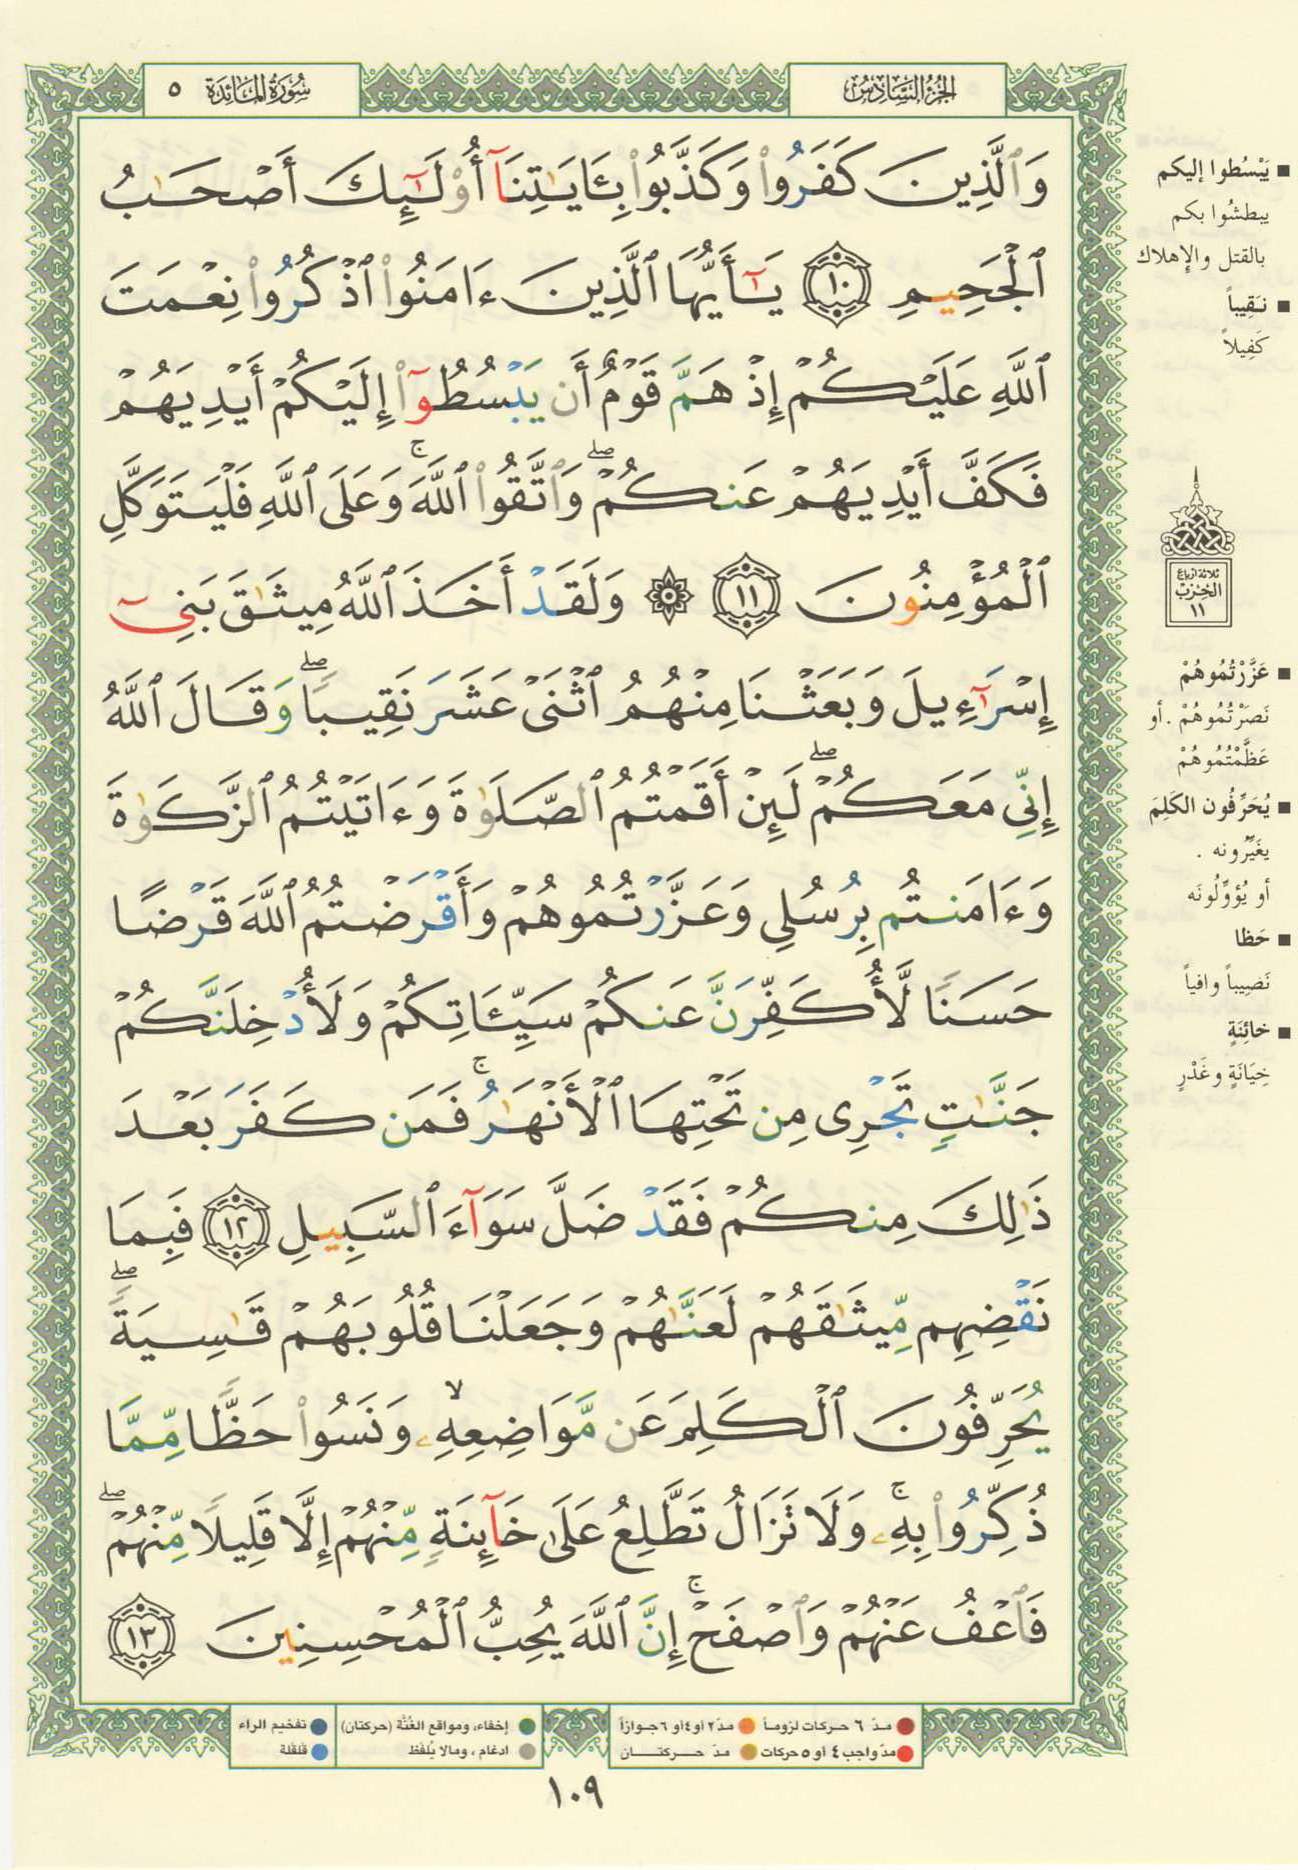 الجزء السادس
سورة المائدة ٥
وَٱلَّذِينَ كَفَرُوا۟ وَكَذَّبُوا۟ بِـَٔايَـٰتِنَآ أُو۟لَـٰٓئِكَ أَصْحَـٰبُ
ٱلْجَحِيمِ ١٠ يَـٰٓأَيُّهَا ٱلَّذِينَ ءَامَنُوا۟ ٱذْكُرُوا۟ نِعْمَتَ
ٱللَّهِ عَلَيْكُمْ إِذْ هَمَّ قَوْمٌ أَن يَبْسُطُوٓا۟ إِلَيْكُمْ أَيْدِيَهُمْ
فَكَفَّ أَيْدِيَهُمْ عَنكُمْ ۖ وَٱتَّقُوا۟ ٱللَّهَ ۚ وَعَلَى ٱللَّهِ فَلْيَتَوَكَّلِ
ٱلْمُؤْمِنُونَ ١١ ۞ وَلَقَدْ أَخَذَ ٱللَّهُ مِيثَـٰقَ بَنِىٓ
إِسْرَٰٓءِيلَ وَبَعَثْنَا مِنْهُمُ ٱثْنَىْ عَشَرَ نَقِيبًا ۖ وَقَالَ ٱللَّهُ
إِنِّى مَعَكُمْ ۖ لَئِنْ أَقَمْتُمُ ٱلصَّلَوٰةَ وَءَاتَيْتُمُ ٱلزَّكَوٰةَ
وَءَامَنتُم بِرُسُلِى وَعَزَّرْتُمُوهُمْ وَأَقْرَضْتُمُ ٱللَّهَ قَرْضًا
حَسَنًا لَّأُكَفِّرَنَّ عَنكُمْ سَيِّـَٔاتِكُمْ وَلَأُدْخِلَنَّكُمْ
جَنَّـٰتٍ تَجْرِى مِن تَحْتِهَا ٱلْأَنْهَـٰرُ ۚ فَمَن كَفَرَ بَعْدَ
ذَٰلِكَ مِنكُمْ فَقَدْ ضَلَّ سَوَآءَ ٱلسَّبِيلِ ١٢ فَبِمَا
نَقْضِهِم مِّيثَـٰقَهُمْ لَعَنَّـٰهُمْ وَجَعَلْنَا قُلُوبَهُمْ قَـٰسِيَةً ۖ
يُحَرِّفُونَ ٱلْكَلِمَ عَن مَّوَاضِعِهِۦ ۙ وَنَسُوا۟ حَظًّا مِّمَّا
ذُكِّرُوا۟ بِهِۦ ۚ وَلَا تَزَالُ تَطَّلِعُ عَلَىٰ خَآئِنَةٍ مِّنْهُمْ إِلَّا قَلِيلًا مِّنْهُمْ ۖ
فَٱعْفُ عَنْهُمْ وَٱصْفَحْ ۚ إِنَّ ٱللَّهَ يُحِبُّ ٱلْمُحْسِنِينَ ١٣
▪ يَبْسُطوا إليكم
يبطشُوا بكم
بالقتل والإهلاك
▪ نَقِيباً
كَفِيلاً
ثلاثة أرباع
الحزب
١١
▪ عَزَّرْتُمُوهُمْ
نَصَرْتُمُوهُمْ . أو
عَظَّمْتُمُوهُمْ
▪ يُحَرِّفُون الكَلِمَ
يغَيِّرُونه .
أو يُؤوِّلُونَه
▪ حَظا
نَصِيباً وافياً
▪ خائِنَةٍ
خِيَانَةٍ وغَدْرٍ
مدّ ٦ حركات لزوماً ● مدّ ٢ أو ٤ أو ٦ جوازاً
مدّ واجب ٤ أو ٥ حركات ● مدّ حركتان
إخفاء، ومواقع الغُنَّة (حركتان) ● تفخيم الراء
إدغام ، ومالا يُلفَظ ● قلقلة
١٠٩